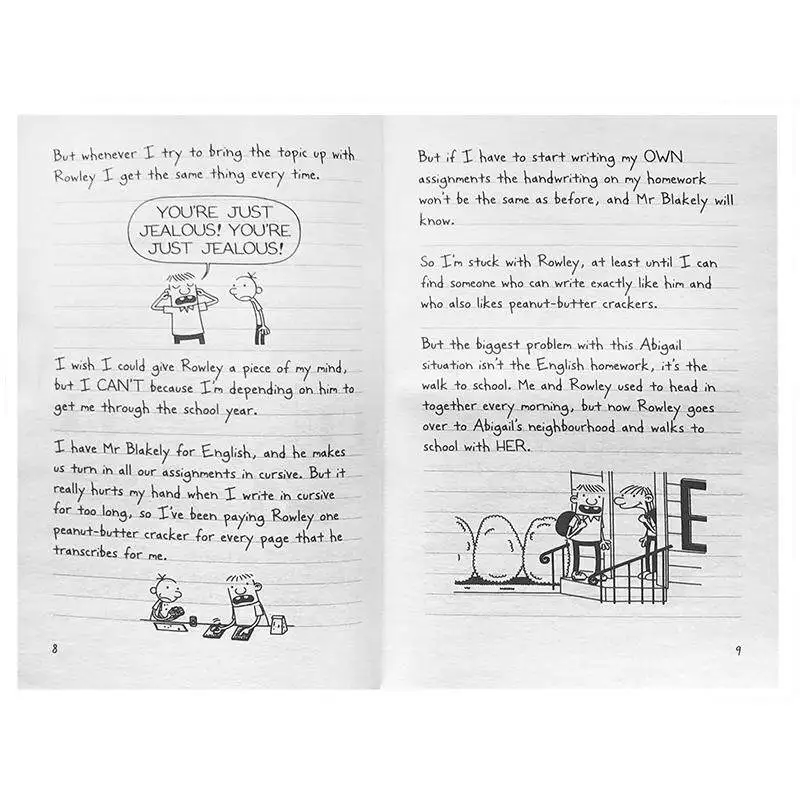 But whenever I try to bring the topic up with
Rowley I get the same thing every time.
YOU'RE JUST
JEALOUS! YOU'RE
JUST JEALOUS!
I wish I could give Rowley a piece of my mind,
but I CAN'T because I'm depending on him to
get me through the school year.
I have Mr Blakely for English, and he makes
us turn in all our assignments in cursive. But it
really hurts my hand when I write in cursive
for too long, so I've been paying Rowley one
peanut-butter cracker for every page that he
transcribes for me.
8
But if I have to start writing my OWN
assignments the handwriting on my homework
won't be the same as before, and Mr Blakely will
know.
So I'm stuck with Rowley, at least until I can
find someone who can write exactly like him and
who also likes peanut-butter crackers.
But the biggest problem with this Abigail
situation isn't the English homework, it's the
walk to school. Me and Rowley used to head in
together every morning, but now Rowley goes
over to Abigail's neighbourhood and walks to
school with HER.
E
9